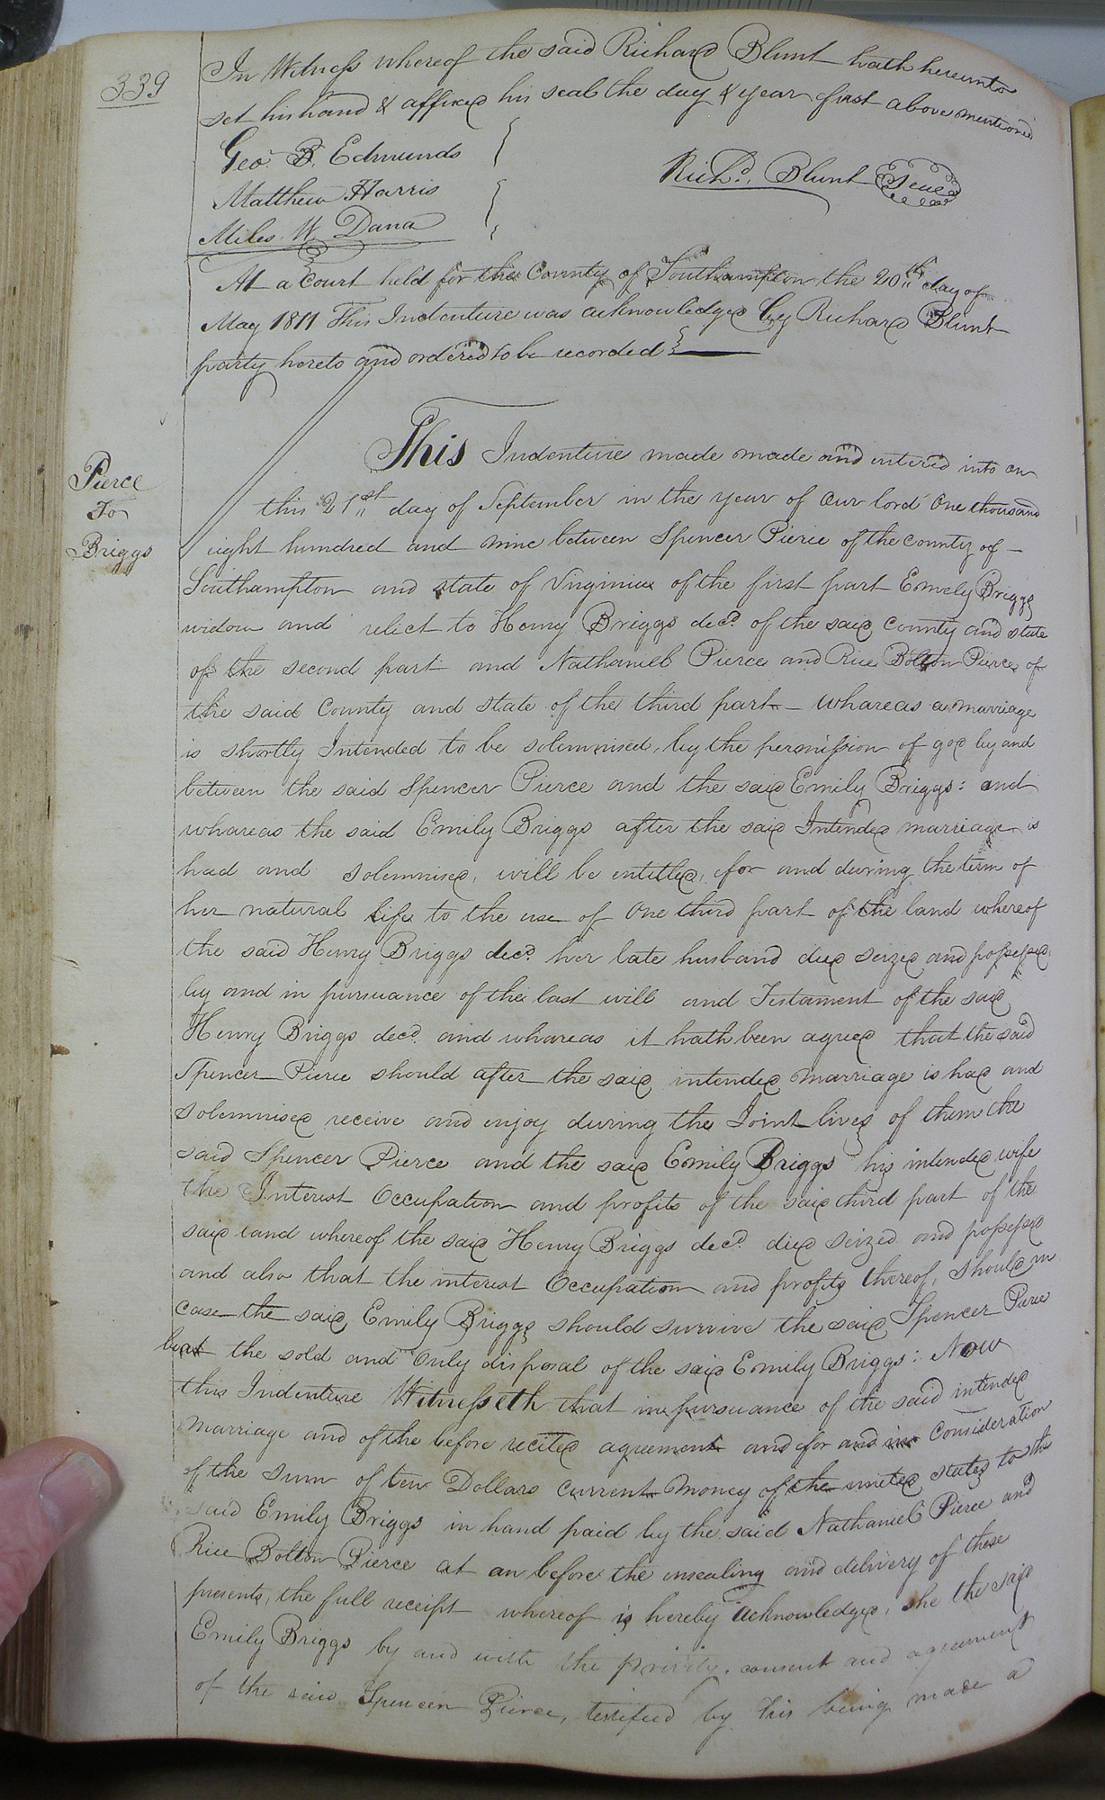 339
In Witness whereof the said Richard Blunt hath hereunto
set his hand & affixed his seal the day & year first above mentioned
Geo. B. Edmunds
Matthew Harris
Miles W. Dana
Richd. Blunt Seal
At a Court held for the County of Southampton the 20th day of
May 1811 This Indenture was acknowledged by Richard Blunt
party hereto and ordered to be recorded
Pierce
To
Briggs
This Indenture made made and entered into on
this 21st day of September in the year of our lord One thousand
eight hundred and nine between Spencer Pierce of the county of
Southampton and state of Virginia of the first part Emely Briggs
widow and relict to Henry Briggs decd. of the said county and state
of the second part and Nathaniel Pierce and Rice Bolton Pierce of
the said County and state of the third part - whareas a marriage
is shortly Intended to be solemnised, by the permission of god by and
between the said Spencer Pierce and the said Emily Briggs: and
whareas the said Emily Briggs after the said Intended marriage is
had and solemnised, will be entitled, for and during the term of
her natural life to the use of One third part of the land whereof
the said Henry Briggs decd. her late husband died seized and possessed
by and in pursuance of the last will and Testament of the said
Henry Briggs decd. and whareas it hath been agreed that the said
Spencer Pierce should after the said intended marriage is had and
solemnised receive and enjoy during the Joint lives of them the
said Spencer Pierce and the said Emily Briggs his intended wife
the Interest Occupation and profits of the said third part of the
said land whereof the said Henry Briggs decd. died seized and possessed
and also that the interest Occupation and profits thereof, should in
case the said Emily Briggs should survive the said Spencer Pierce
be at the sold and Only disposal of the said Emily Briggs: Now
this Indenture Witnesseth that in pursuance of the said intended
Marriage and of the before recited agreement and for and in Consideration
of the sum of ten Dollars current Money of the united states to the
said Emily Briggs in hand paid by the said Nathaniel Pierce and
Rice Bolton Pierce at an before the ensealing and delivery of these
presents, the full receipt whereof is hereby acknowledged, she the said
Emily Briggs by and with the privity, consent and agreement
of the said Spencer Pierce, testified by his being made a